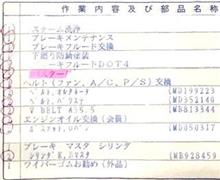 作業内容及び部品名
スチーム洗浄
ブレーキメンテナンス
ブレーキフルード交換
下廻り防錆塗装
ーキフルードDOT4
ベルト(ファン、A/C、P/S)交換
ベルト, (MD199223
ベルト, (MD352140
V BELT A35.5 (MB813344
エンジンオイル交換(会員)
(MD050317
ブレーキ マスタ シリンダ
シリンダK,Bマスタ (MB928459
ワイパーゴムお勧め(外品)